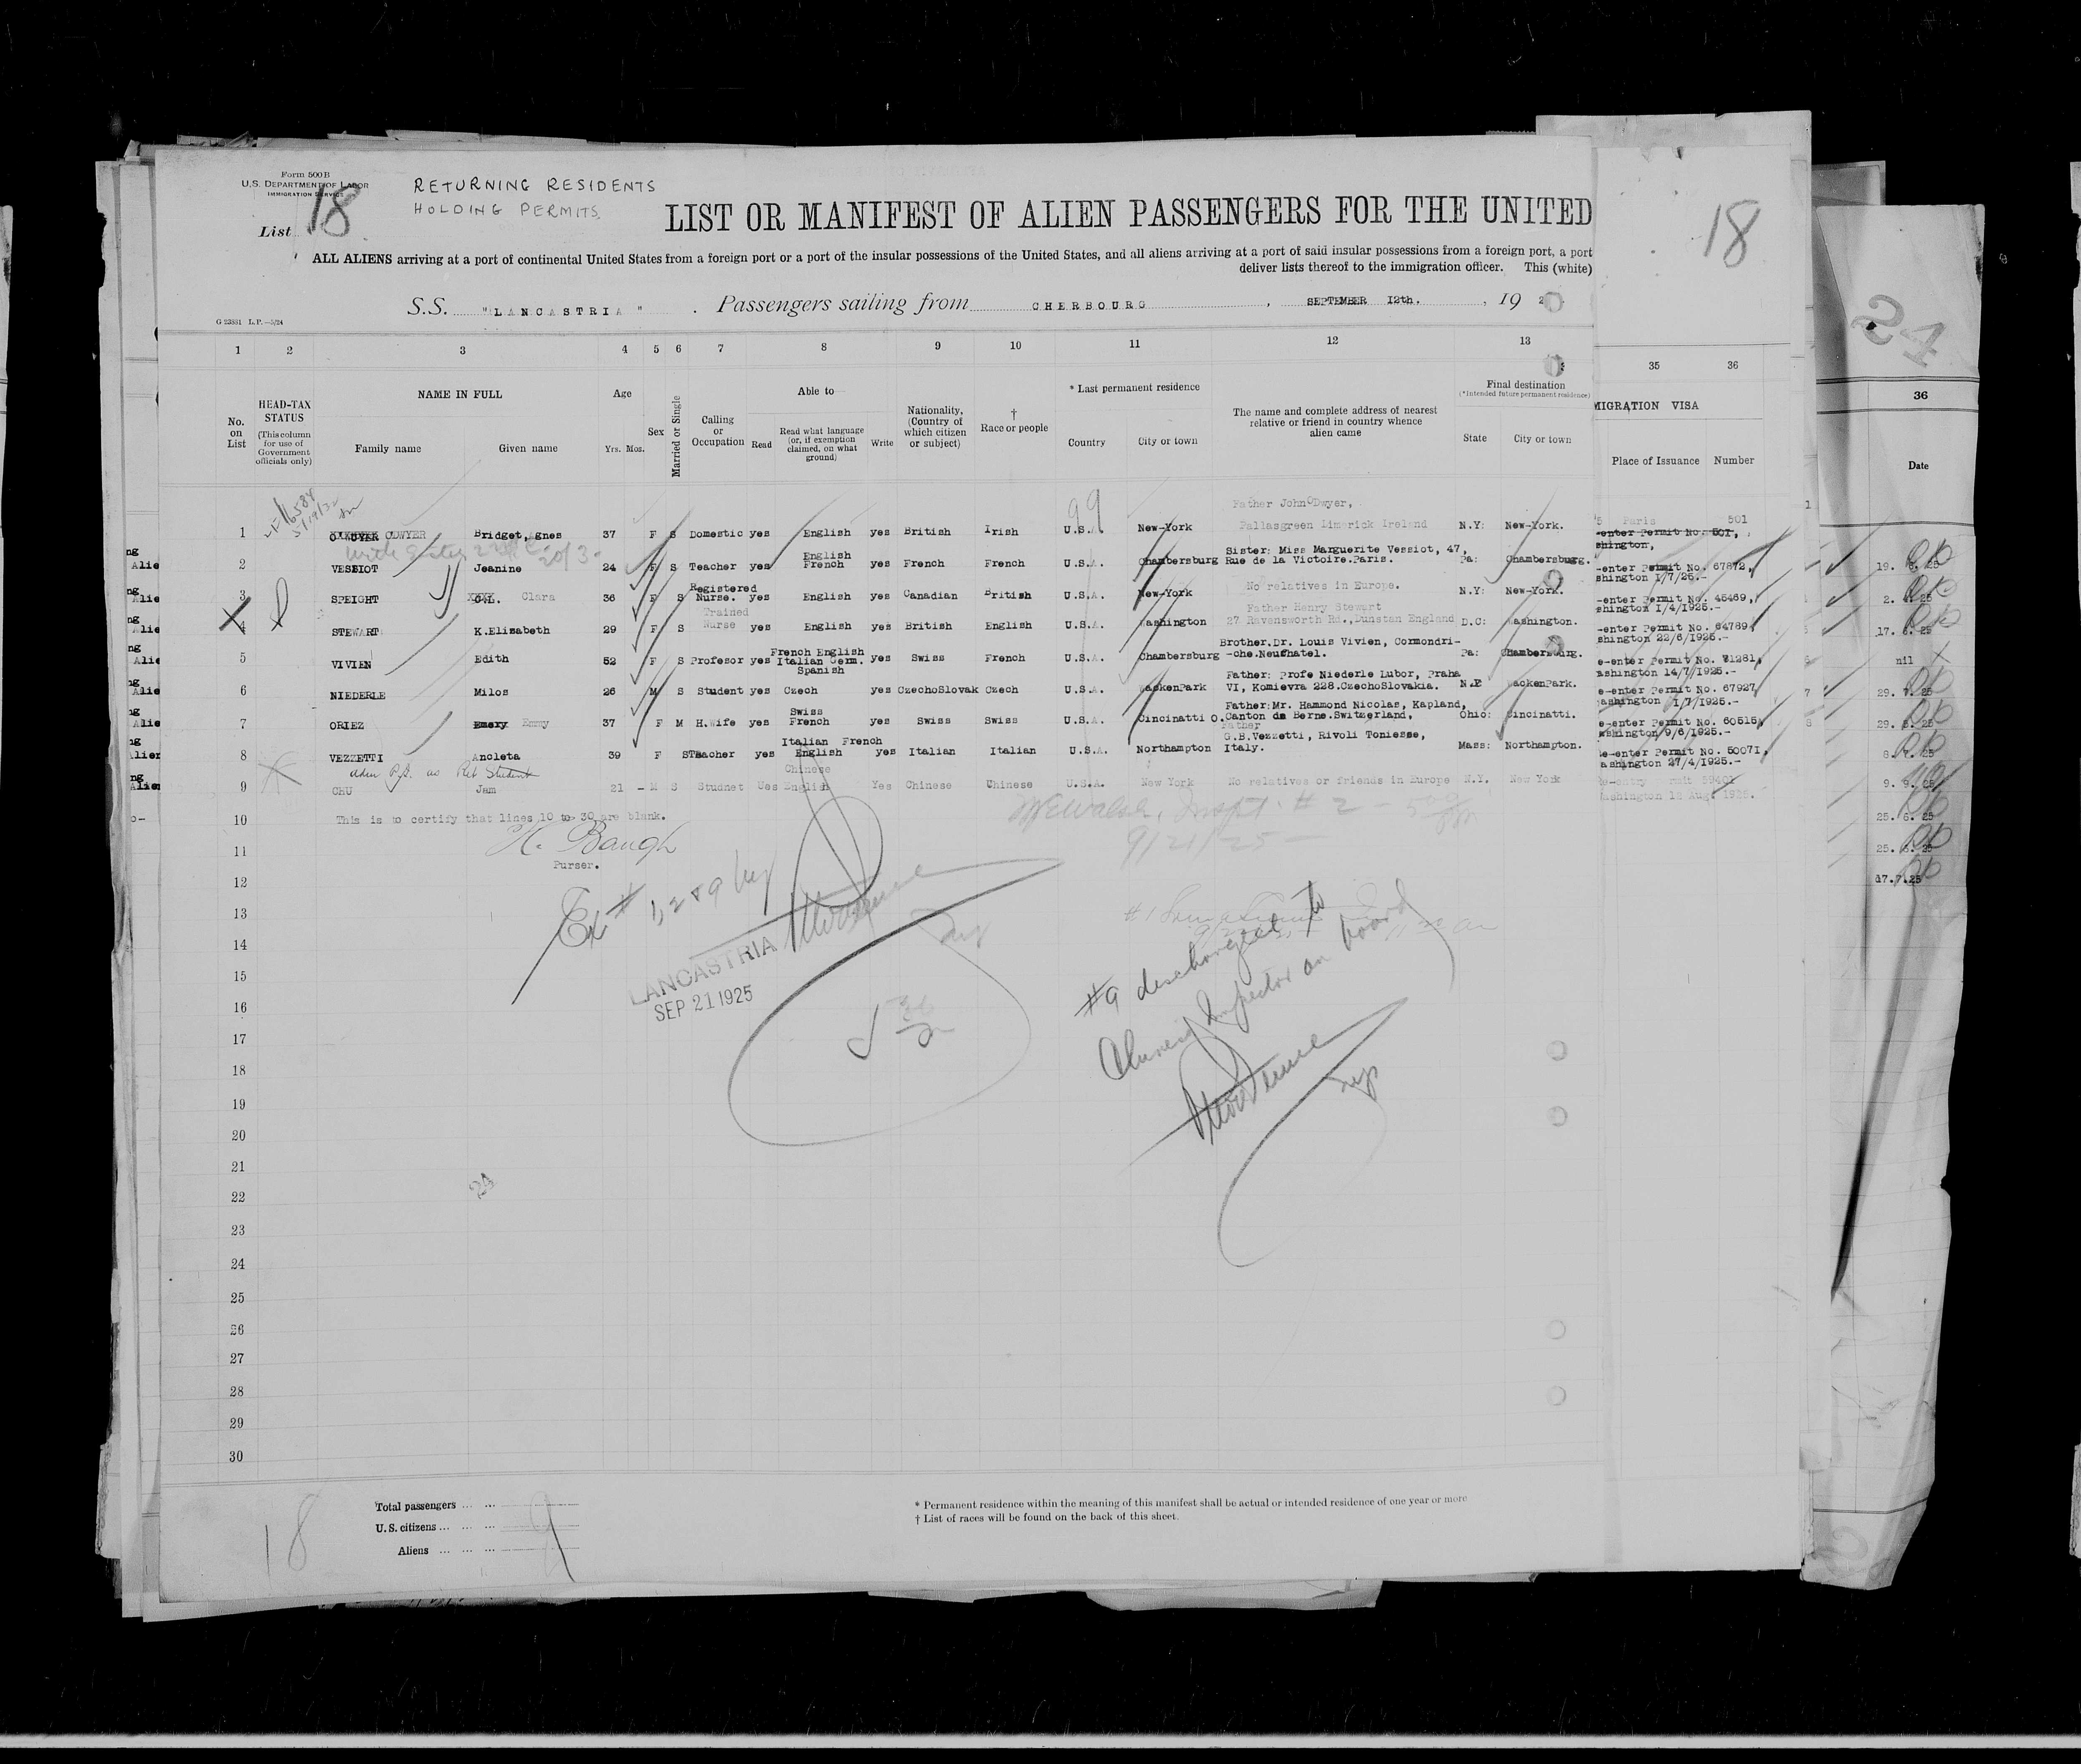 Form 500B
U.S. DEPARTMENT OF LABOR
IMMIGRATION SERVICE
RETURNING RESIDENTS
HOLDING PERMITS.
List 18
18
LIST OR MANIFEST OF ALIEN PASSENGERS FOR THE UNITED
ALL ALIENS arriving at a port of continental United States from a foreign port or a port of the insular possessions of the United States, and all aliens arriving at a port of said insular possessions from a foreign port, a port
deliver lists thereof to the immigration officer. This (white)
S.S. "LANCASTRIA" . Passengers sailing from CHERBOURG , SEPTEMBER 12th. , 19 2
G 23881 L.P.—5/24
1 2 3 4 5 6 7 8 9 10 11 12 13 35 36
No. on List
HEAD-TAX STATUS
(This column for use of Government officials only)
NAME IN FULL
Family name Given name
Age
Yrs. Mos.
Sex
Married or Single
Calling or Occupation
Able to
Read
Read what language (or, if exemption claimed, on what ground)
Write
Nationality, (Country of which citizen or subject)
† Race or people
* Last permanent residence
Country City or town
The name and complete address of nearest relative or friend in country whence alien came
Final destination
(*Intended future permanent residence)
State City or town
MIGRATION VISA
Place of Issuance Number
36
Date
99
Father John ODwyer,
1 ODWYER Bridget, Agnes 37 F S Domestic yes English yes British Irish U.S.A. New-York Pallasgreen Limerick Ireland N.Y: New-York. Paris 501
-enter Permit No. 501,
shington,
2 VESSIOT Jeanine 24 F S Teacher yes English French yes French French U.S.A. Chambersburg Sister: Miss Marguerite Vessiot, 47, Rue de la Victoire.Paris. Pa: Chambersburg. -enter Permit No. 67872,
shington 1/7/25.-
3 SPEIGHT Clara 36 F S Registered Nurse. yes English yes Canadian British U.S.A. New-York No relatives in Europe. N.Y: New-York. -enter Permit No. 45469,
shington 1/4/1925.-
4 STEWART K.Elizabeth 29 F S Trained Nurse yes English yes British English U.S.A. Washington Father Henry Stewart 27 Ravensworth Rd.,Dunstan England D.C: Washington. -enter Permit No. 64789,
shington 22/6/1925.-
5 VIVIEN Edith 52 F S Profesor yes French English Italian Germ. Spanish yes Swiss French U.S.A. Chambersburg Brother.Dr. Louis Vivien, Cormondri-
-che.Neufhatel. Pa: Chambersburg. e-enter Permit No. 71281,
ashington 14/7/1925.-
6 NIEDERLE Milos 26 M S Student yes Czech yes CzechoSlovak Czech U.S.A. Father: Profe Niederle Lubor, Praha
VI, Komievra 228.CzechoSlovakia. e-enter Permit No. 67927,
ashington 1/7/1925.-
7 ORIEZ Emery Emmy 37 F M H.Wife yes Swiss French yes Swiss Swiss U.S.A. Cincinatti O. Father:Mr. Hammond Nicolas, Kapland,
Canton de Berne.Switzerland, Ohio: Cincinatti. e-enter Permit No. 60515,
ashington 9/6/1925.-
8 VEZZETTI Ancleta 39 F S Teacher yes Italian French English yes Italian Italian U.S.A. Northampton Father G.B.Vezzetti, Rivoli Toniesse,
Italy. Mass: Northampton. e-enter Permit No. 50071,
ashington 27/4/1925.-
9 CHU Jam 21 M S Studnet Ues Chinese English Yes Chinese Chinese U.S.A. New York No relatives or friends in Europe N.Y. New York
10 This is to certify that lines 10 to 30 are blank.
11 H. Baugh
Purser.
12
13
14
15
16
17
18
19
20
21
22
23
24
25
26
27
28
29
30
9/21/25
LANCASTRIA
SEP 21 1925
#9 discharged to
Chinese Inspector on board
24
nil
18
Total passengers 9
U.S. citizens
Aliens
* Permanent residence within the meaning of this manifest shall be actual or intended residence of one year or more
† List of races will be found on the back of this sheet.